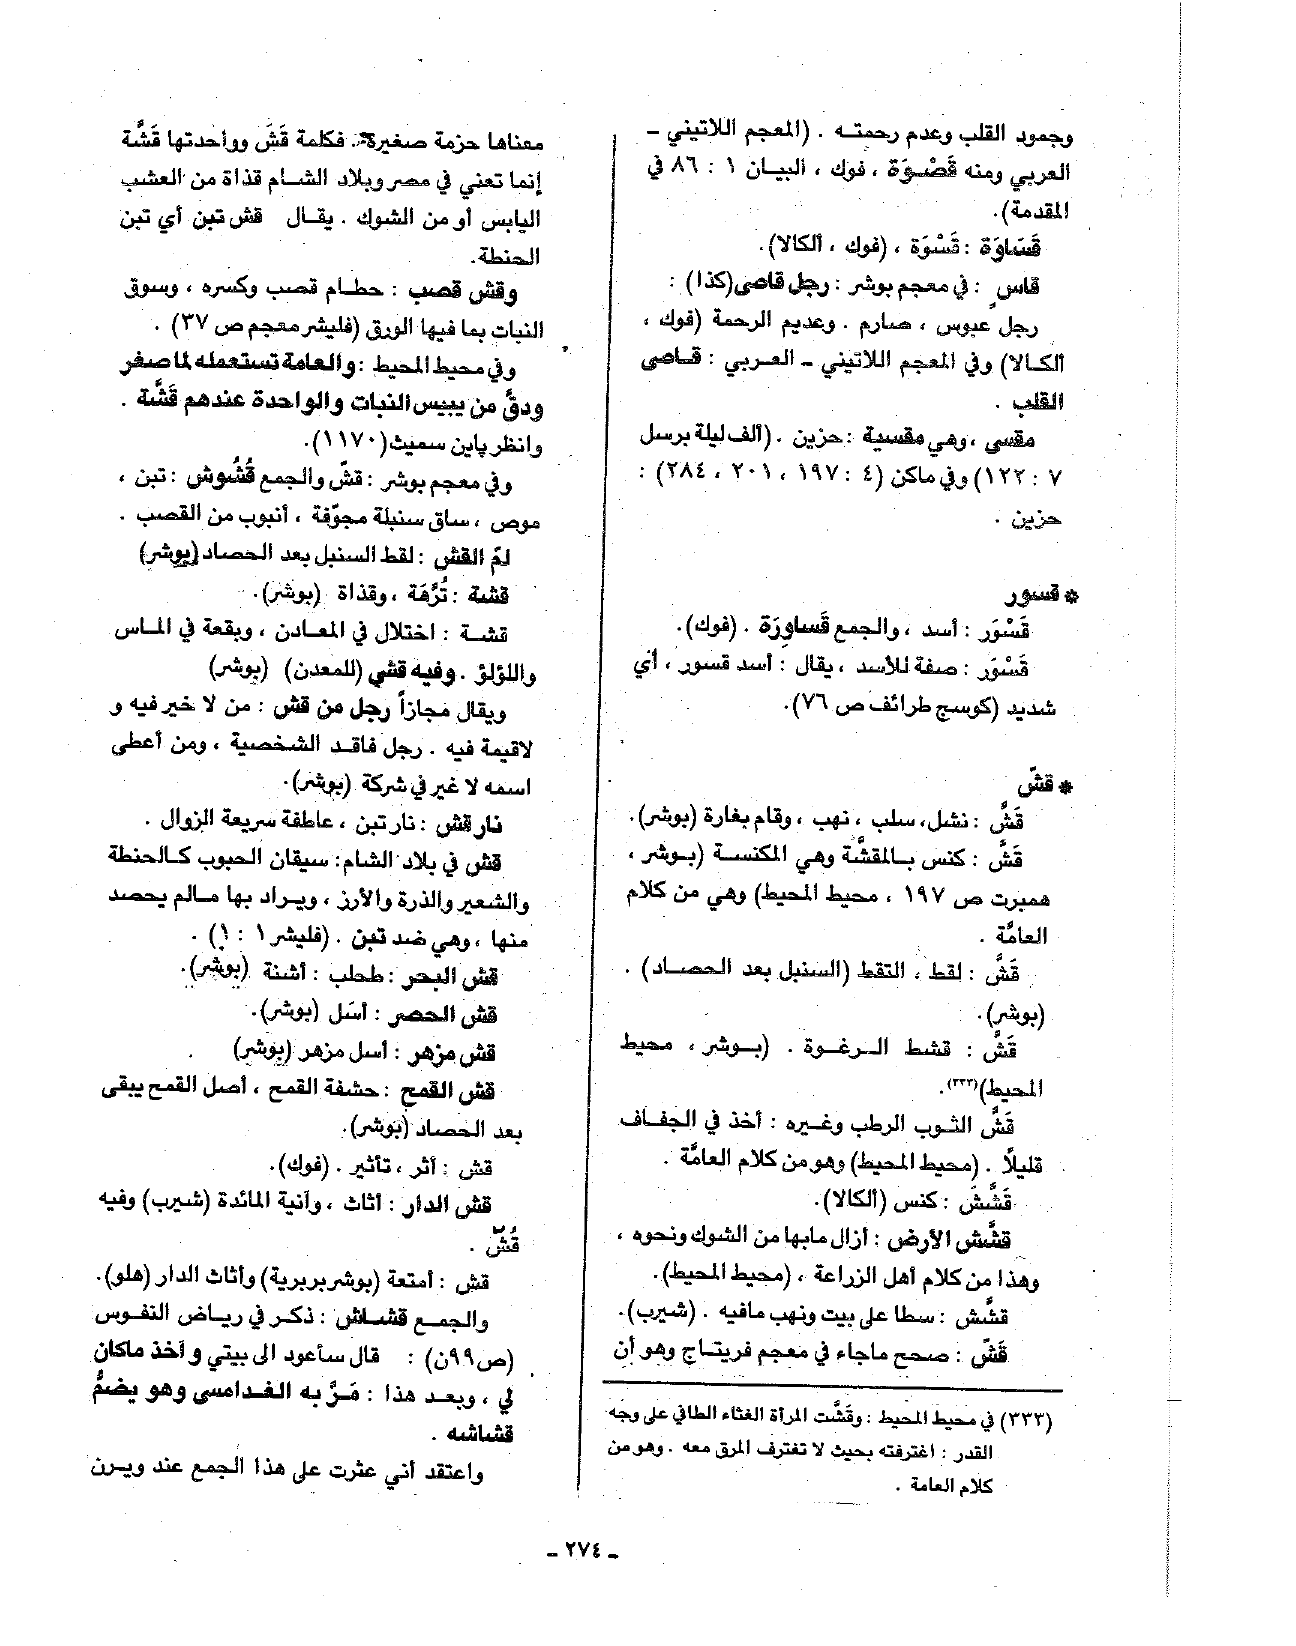 وجمود القلب وعدم رحمته . (المعجم اللاتيني –
العربي ومنه قَصْوَة ، فوك ، البيان ١ : ٨٦ في
المقدمة).
قَسَاوَة : قَسْوَة ، (فوك ، ألكالا).
قاسٍ : في معجم بوشر : رجل قاصى (كذا) :
رجل عبوس ، صارم . وعديم الرحمة (فوك ،
ألكالا) وفي المعجم اللاتيني – العربي : قاصى
القلب .
مقسى ، وهي مقسية : حزين . (ألف ليلة برسل
٧ : ١٢٢) وفي ماكن (٤ : ١٩٧ ، ٢٠١ ، ٢٨٤) :
حزين .
* قسور
قَسْوَر : أسد ، والجمع قَساورَة . (فوك).
قَسْوَر : صفة للأسد ، يقال : أسد قسور ، أي
شديد (كوسج طرائف ص ٧٦).
* قشّ
قَشَّ : نشل، سلب ، نهب ، وقام بغارة (بوشر).
قَشَّ : كنس بالمقشَّة وهي المكنسة (بوشر ،
همبرت ص ١٩٧ ، محيط المحيط) وهي من كلام
العامَّة .
قَشَّ : لقط ، التقط (السنبل بعد الحصاد) .
(بوشر).
قَشَّ : قشط الرغوة . (بوشر ، محيط
المحيط)(٣٣٣).
قَشَّ الثوب الرطب وغيره : أخذ في الجفاف
قليلاً . (محيط المحيط) وهو من كلام العامَّة .
قَشَّشَ : كنس (ألكالا).
قشَّش الأرض : أزال مابها من الشوك ونحوه ،
وهذا من كلام أهل الزراعة ، (محيط المحيط).
قشَّش : سطا على بيت ونهب مافيه . (شيرب).
قَشّ : صحح ماجاء في معجم فريتاج وهو أن
(٣٣٣) في محيط المحيط : وقَشَّت المرأة الغثاء الطافي على وجه
القدر : اغترفته بحيث لا تغترف المرق معه . وهو من
كلام العامة .
معناها حزمة صغيرة. فكلمة قَشّ وواحدتها قَشَّة
إنما تعني في مصر وبلاد الشام قذاة من العشب
اليابس أو من الشوك . يقال قش تبن أي تبن
الحنطة.
وقش قصب : حطام قصب وكسره ، وسوق
النبات بما فيها الورق (فليشر معجم ص ٣٧) .
وفي محيط المحيط : والعامة تستعمله لما صغر
ودقَّ من يبيس النبات والواحدة عندهم قَشَّة .
وانظر پاين سميث (١١٧٠).
وفي معجم بوشر : قشّ والجمع قُشُوش : تبن ،
موص ، ساق سنبلة مجوّفة ، أنبوب من القصب .
لمّ القش : لقط السنبل بعد الحصاد (بوشر)
قشة : تُرَّهَة ، وقذاة (بوشر).
قشة : اختلال في المعادن ، وبقعة في الماس
واللؤلؤ . وفيه قشي (للمعدن) (بوشر)
ويقال مجازاً رجل من قش : من لا خير فيه و
لاقيمة فيه . رجل فاقد الشخصية ، ومن أعطى
اسمه لا غير في شركة (بوشر).
نار قش : نار تبن ، عاطفة سريعة الزوال .
قش في بلاد الشام : سيقان الحبوب كالحنطة
والشعير والذرة والأرز ، ويراد بها مالم يحصد
منها ، وهي ضد تبن . (فليشر ١ : ١) .
قش البحر : طحلب : أشنة (بوشر).
قش الحصر : أسَل (بوشر).
قش مزهر : أسل مزهر (بوشر) .
قش القمح : حشفة القمح ، أصل القمح يبقى
بعد الحصاد (بوشر).
قش : أثر ، تأثير . (فوك).
قش الدار : أثاث ، وأنية المائدة (شيرب) وفيه
قُشّ .
قش : أمتعة (بوشر بربرية) وأثاث الدار (هلو).
والجمع قشاش : ذكر في رياض النفوس
(ص٩٩ن) : قال سأعود الى بيتي وأخذ ماكان
لي ، وبعد هذا : مَرَّ به الغدامسى وهو يضمُّ
قشاشه .
واعتقد أني عثرت على هذا الجمع عند ويرن
– ٢٧٤ –